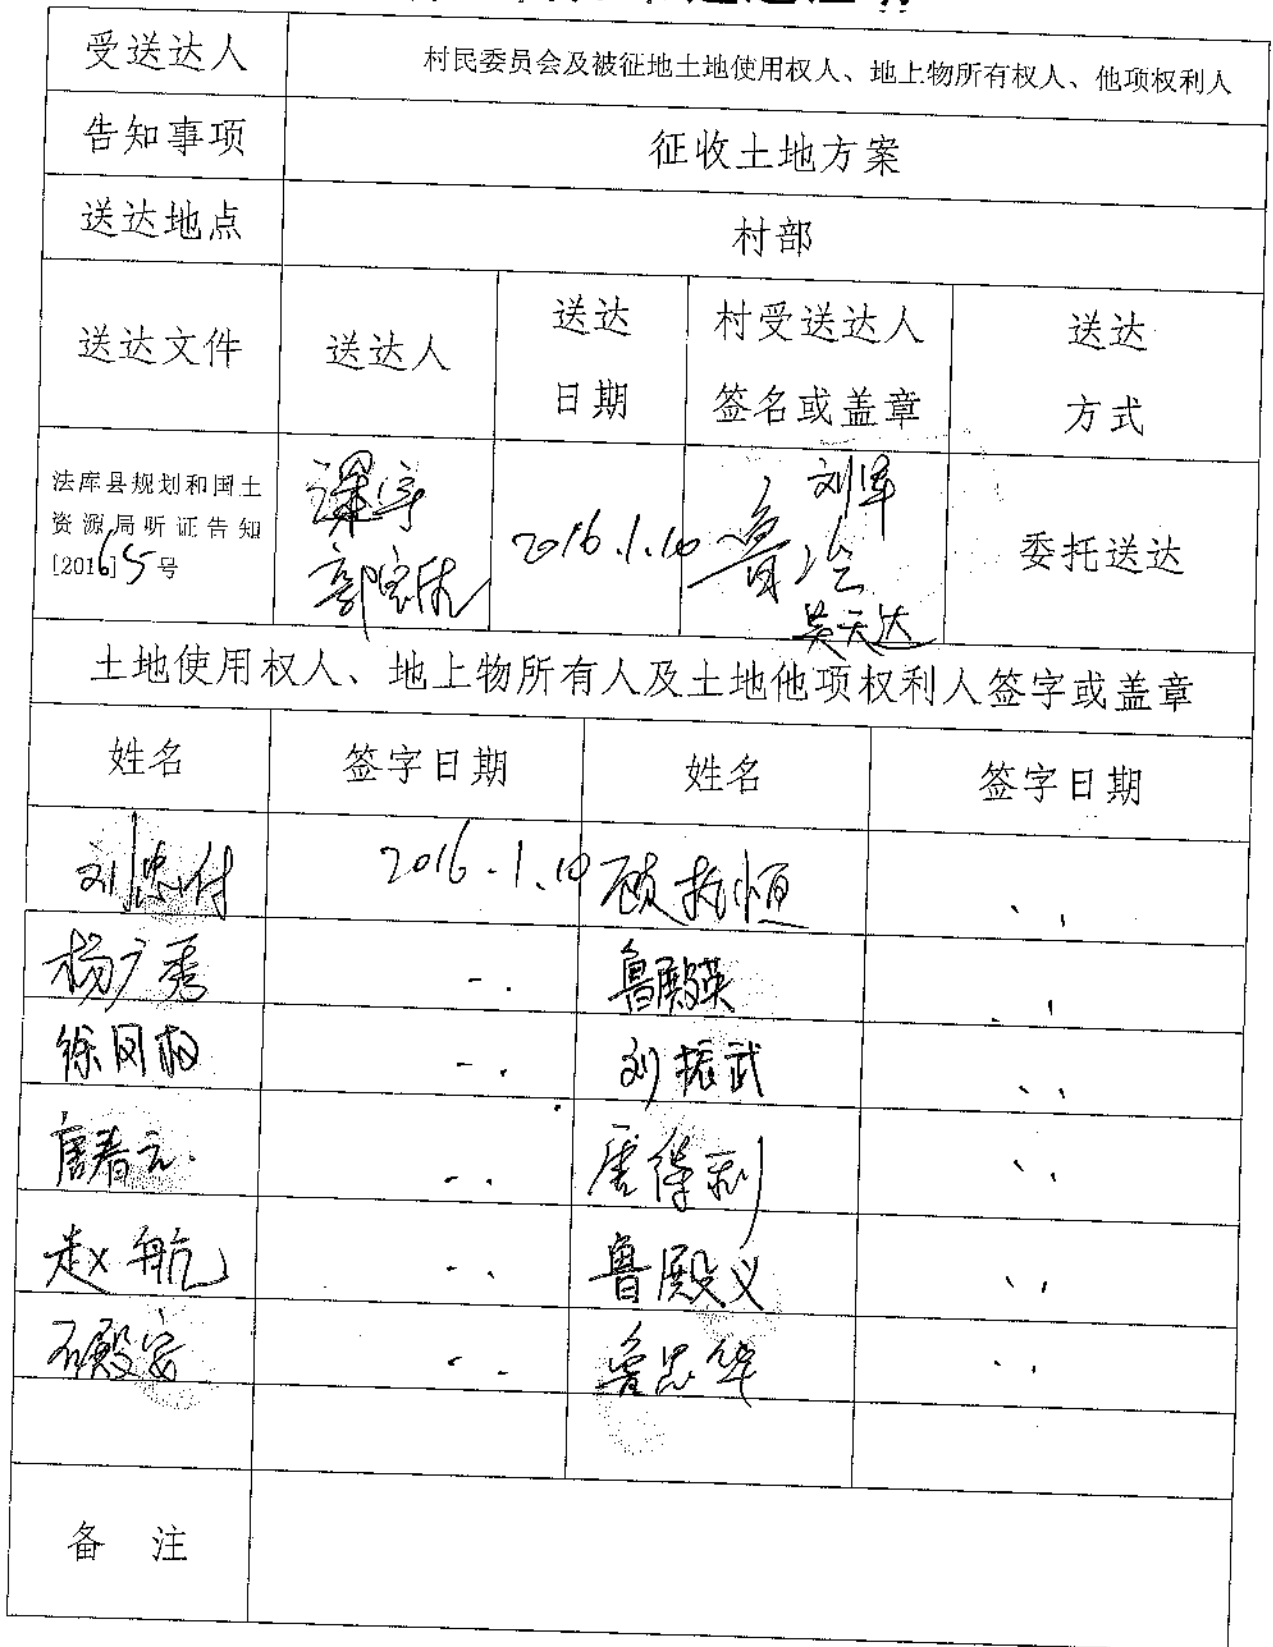 受送达人 村民委员会及被征地土地使用权人、地上物所有权人、他项权利人
告知事项 征收土地方案
送达地点 村部
送达文件 送达人 送达日期 村受送达人签名或盖章 送达方式
法库县规划和国土
资源局听证告知
[2016]5号
2016.1.10
刘军
吴天达
委托送达
土地使用权人、地上物所有人及土地他项权利人签字或盖章
姓名 签字日期 姓名 签字日期
刘忠付 2016.1.10
杨广秀 鲁殿英
刘振武
唐春元 唐得利
赵航 鲁殿义
石殿安 鲁忠华
备 注